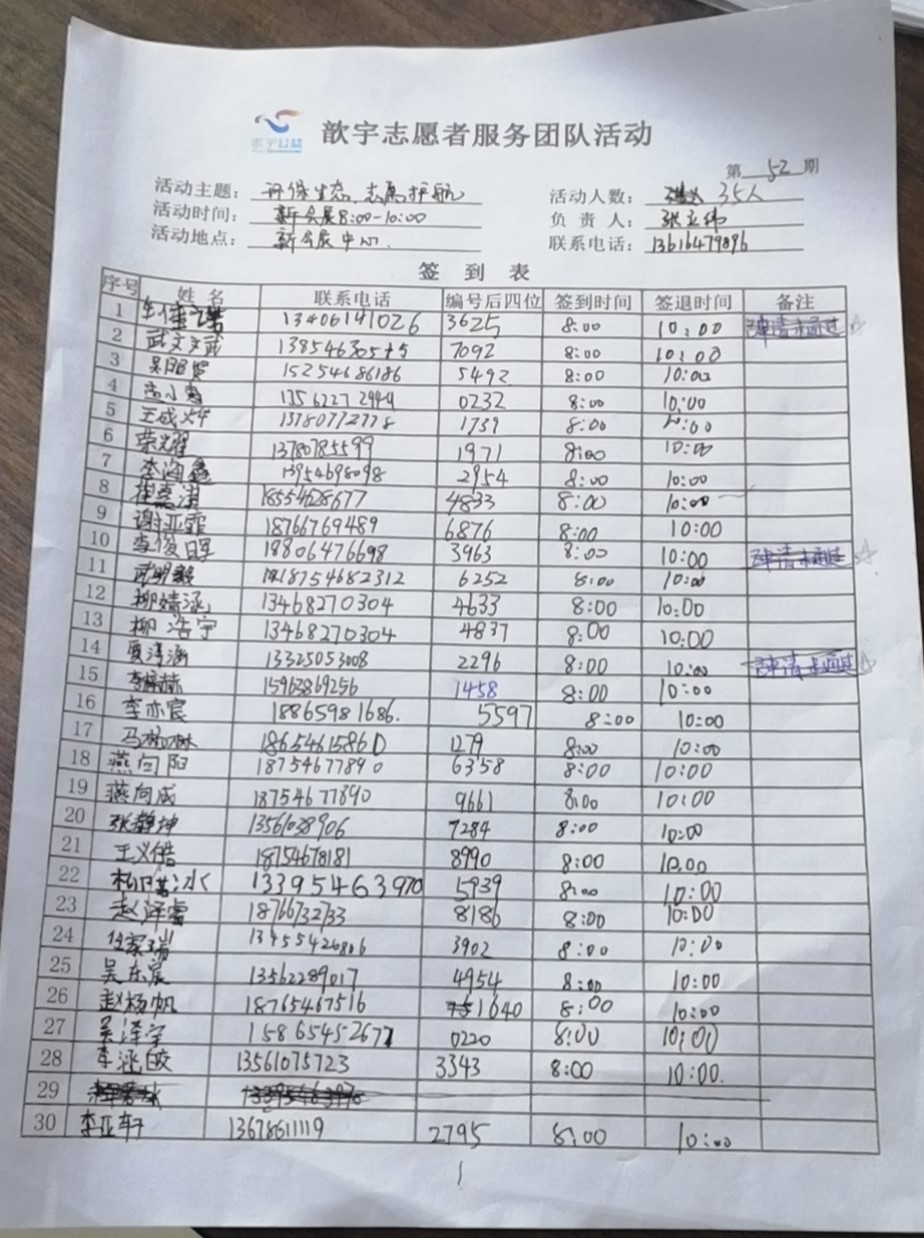 歆宇公益
歆宇志愿者服务团队活动
第 52 期
活动主题: 环保生态、志愿护航 活动人数: 35人
活动时间: 新会展8:00-10:00 负责人: 张立伟
活动地点: 新会展中心. 联系电话: 13616479896
签到表
序号 姓名 联系电话 编号后四位 签到时间 签退时间 备注
1 13406141026 3625 8:00 10:00 申请未通过
2 7092 8:00 10:00
3 15254686186 5492 8:00 10:00
4 13562272944 0232 8:00 10:00
5 王成烨 13780772778 1739 8:00
6 荣耀 13780785599 1971 8:00 10:00
7 李海鑫 13954698098 2954 8:00 10:00
8 18554628677 4833 8:00 10:00
9 谢亚霏 18766769489 6876 8:00 10:00
10 李俊晖 18806476698 3963 8:00 10:00 申请未通过
11 武明毅 18754682312 6252 8:00 10:00
12 柳婧涵 13468270304 4633 8:00 10:00
13 柳浩宇 13468270304 4837 8:00 10:00
14 13325053008 2296 8:00 10:00 申请未通过
15 15963869256 1458 8:00 10:00
16 李亦宸 18865981686. 5597 8:00 10:00
17 18654615860 1279 8:00 10:00
18 燕向阳 18754677890 6358 8:00 10:00
19 燕向成 18754677890 9661 8:00 10:00
20 张静坤 13561038906 7284 8:00 10:00
21 王义皓 18754678181 8990 8:00 10:00
22 13395463970 5939 8:00 10:00
23 赵泽睿 18766732733 8186 8:00 10:00
24 任家瑞 13455426806 3902 8:00 10:00
25 吴东宸 13562289017 4954 8:00 10:00
26 赵杨帆 18765467516 1640 8:00 10:00
27 吴泽宇 15865452677 0220 8:00 10:00
28 李涵皎 13561075723 3343 8:00 10:00.
29
30 李亚轩 13678611119 2795 8:00 10:00
1